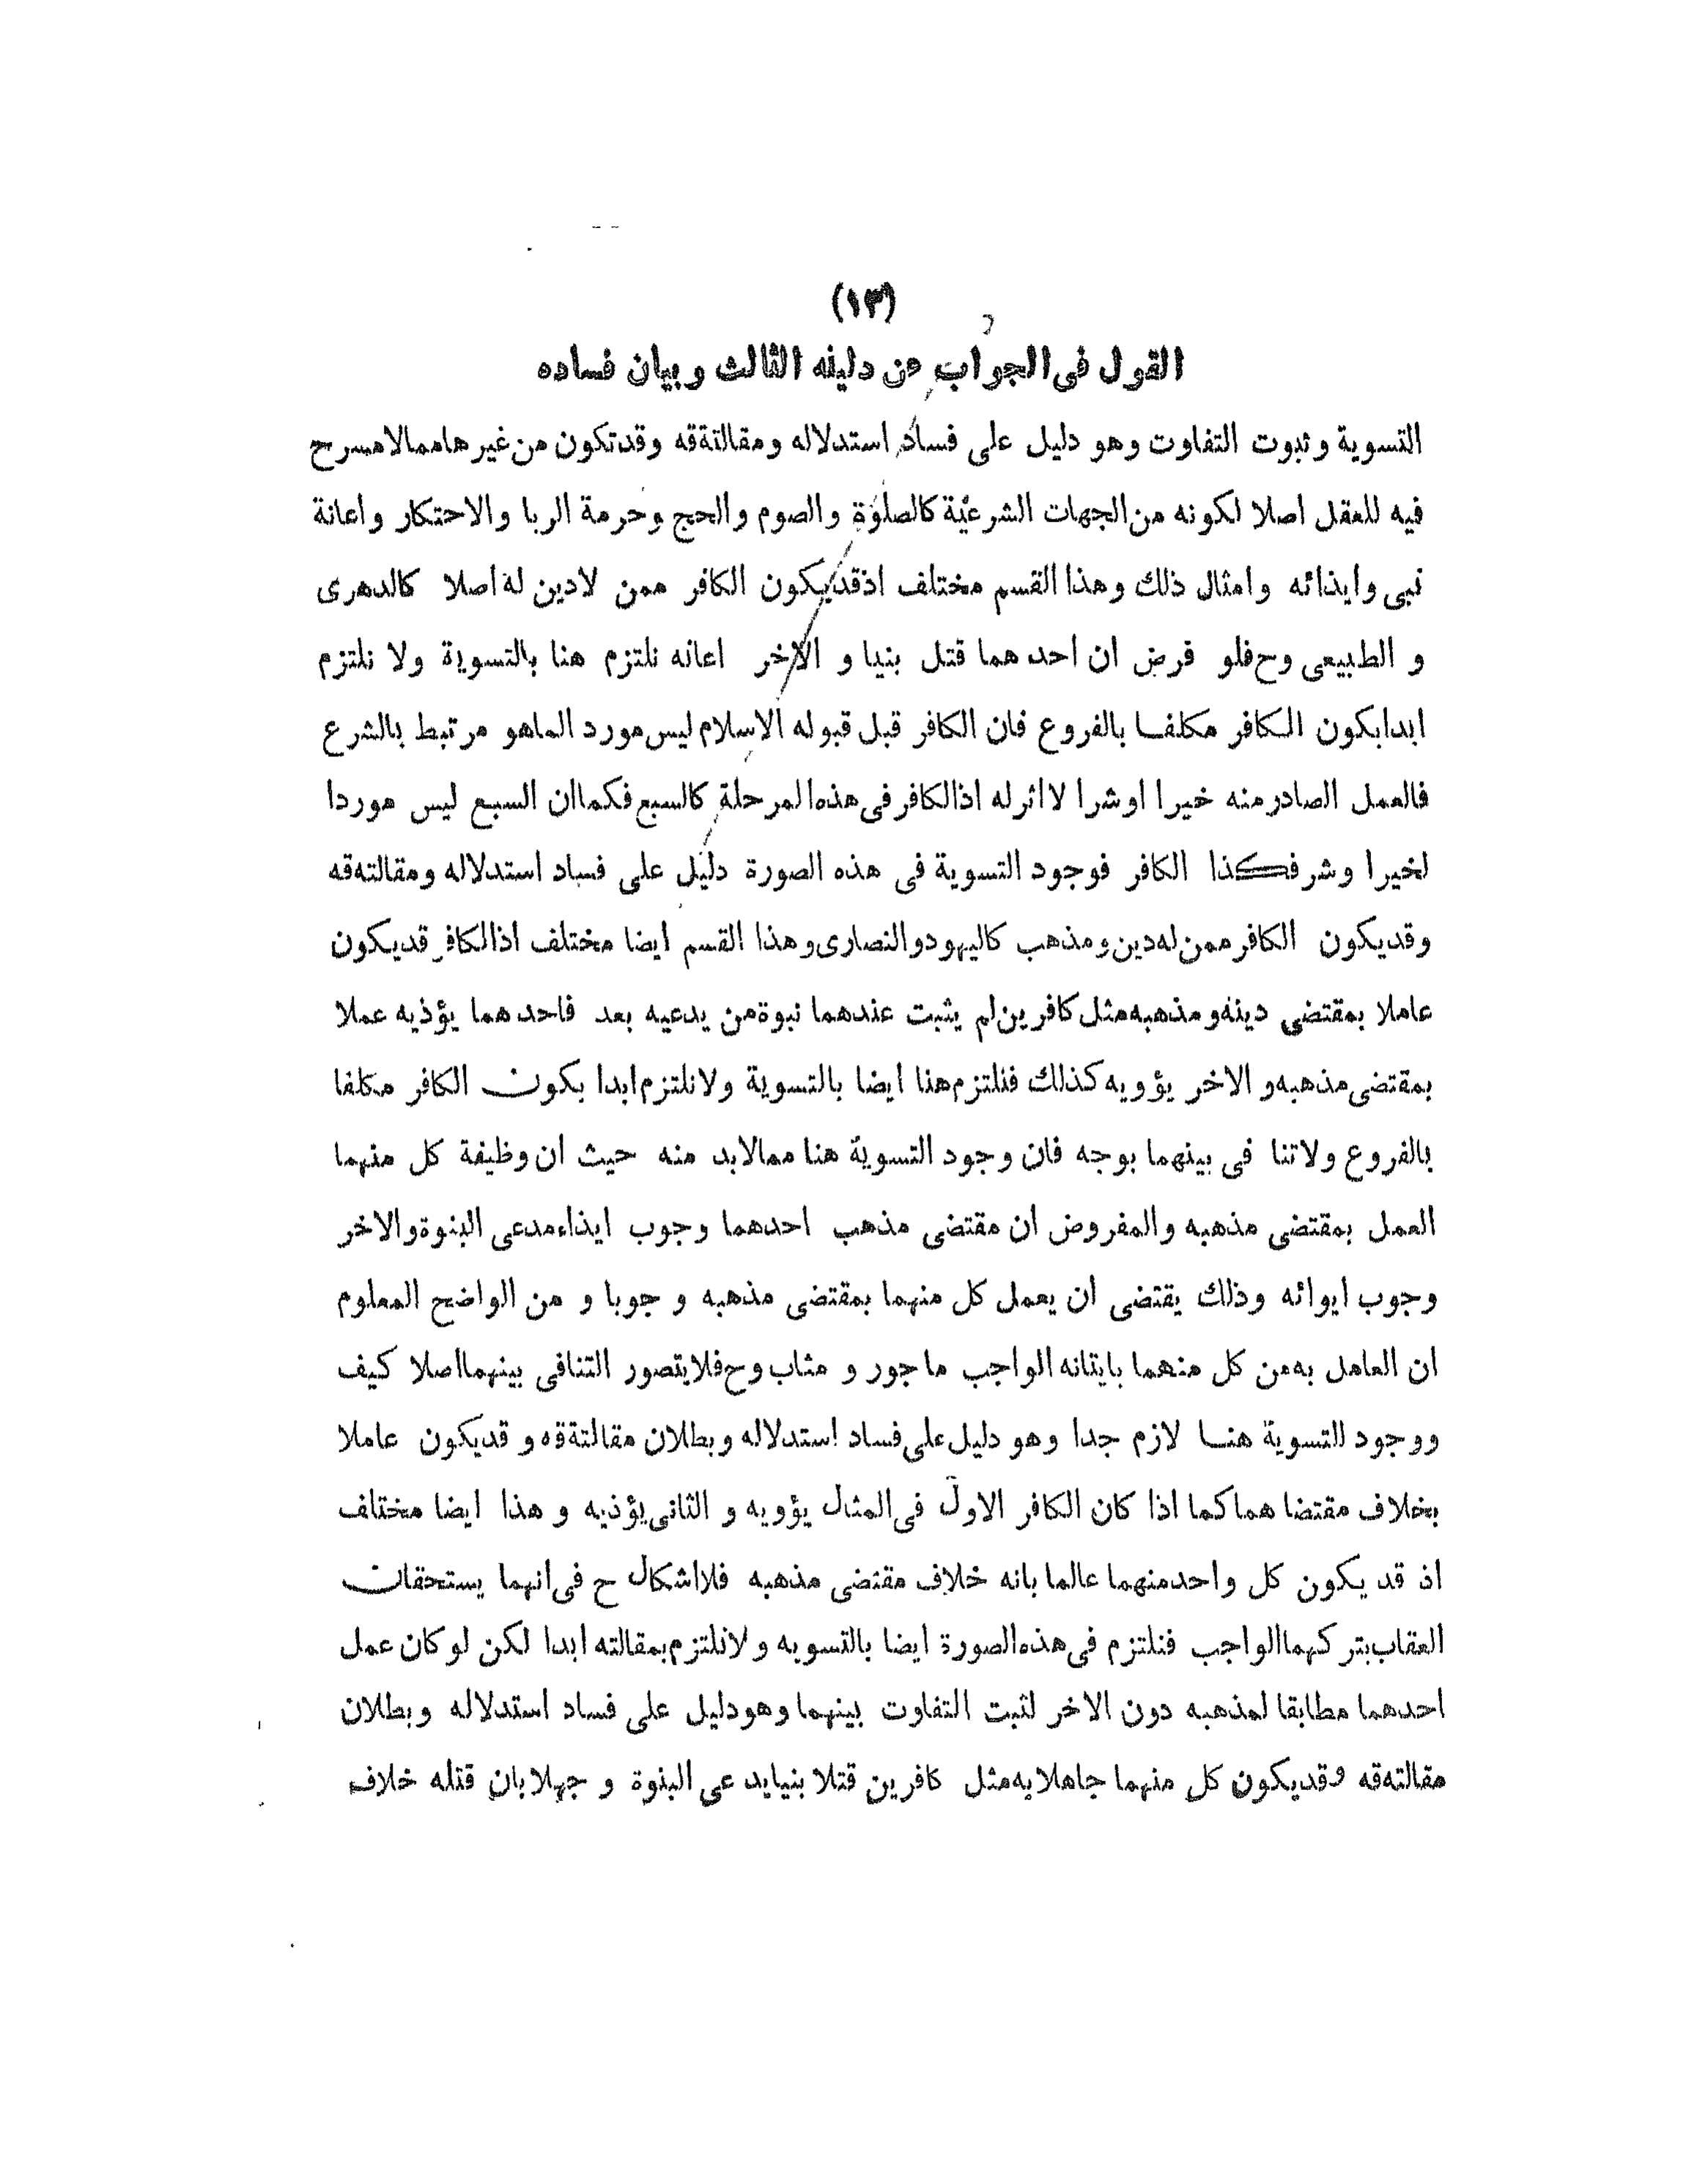 (١٣)
القول فى الجواب عن دليله الثالث وبيان فساده
التسوية وثبوت التفاوت وهو دليل على فساد استدلاله ومقالتةقه وقدتكون من غيرهاممالامسرح
فيه للعقل اصلا لكونه من الجهات الشرعيّة كالصلوٰة والصوم والحج وحرمة الربا والاحتكار واعانة
نبى وايذائه وامثال ذلك وهذا القسم مختلف اذقديكون الكافر ممن لادين له اصلا كالدهرى
و الطبيعى وح فلو فرض ان احدهما قتل بنيا و الاخر اعانه نلتزم هنا بالتسوية ولا نلتزم
ابدابكون الكافر مكلفا بالفروع فان الكافر قبل قبوله الاسلام ليس مورد الماهو مرتبط بالشرع
فالعمل الصادر منه خيرا اوشرا لااثرله اذالكافر فى هذه المرحلة كالسبع فكماان السبع ليس موردا
لخيرا وشر فكذا الكافر فوجود التسوية فى هذه الصورة دليل على فساد استدلاله ومقالتهقه
وقديكون الكافر ممن له دين ومذهب كاليهودوالنصارى وهذا القسم ايضا مختلف اذالكافر قديكون
عاملا بمقتضى دينه ومذهبه مثل كافرين لم يثبت عندهما نبوة من يدعيه بعد فاحدهما يؤذيه عملا
بمقتضى مذهبه و الاخر يؤويه كذلك فنلتزم هنا ايضا بالتسوية ولانلتزم ابدا بكون الكافر مكلفا
بالفروع ولاتنا فى بينهما بوجه فان وجود التسوية هنا ممالابد منه حيث ان وظيفة كل منهما
العمل بمقتضى مذهبه والمفروض ان مقتضى مذهب احدهما وجوب ايذاءمدعى البنوة والاخر
وجوب ايوائه وذلك يقتضى ان يعمل كل منهما بمقتضى مذهبه و جوبا و من الواضح المعلوم
ان العامل به من كل منهما بايتانه الواجب ماجور و مثاب وح فلايتصور التنافى بينهمااصلا كيف
ووجود للتسوية هنا لازم جدا وهو دليل على فساد استدلاله وبطلان مقالتةقه و قديكون عاملا
بخلاف مقتضا هما كما اذا كان الكافر الاول فى المثال يؤويه و الثانى يؤذيه و هذا ايضا مختلف
اذ قد يكون كل واحدمنهما عالما بانه خلاف مقتضى مذهبه فلااشكال ح فى انهما يستحقان
العقاب بتر كهما الواجب فنلتزم فى هذه الصورة ايضا بالتسويه ولانلتزم بمقالته ابدا لكن لوكان عمل
احدهما مطابقا لمذهبه دون الاخر لثبت التفاوت بينهما وهودليل على فساد استدلاله وبطلان
مقالتهقه وقديكون كل منهما جاهلابه مثل كافرين قتلا بنيايد عى البنوة و جهلابان قتله خلاف